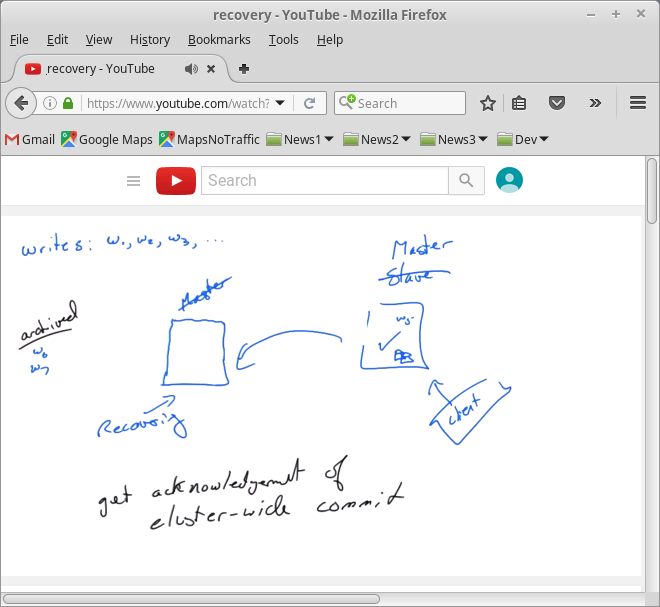 recovery - YouTube - Mozilla Firefox
File Edit View History Bookmarks Tools Help
recovery - YouTube
https://www.youtube.com/watch? Search
Gmail Google Maps MapsNoTraffic News1 News2 News3 Dev
Search
writes: w1, w2, w3, ...
Master
Slave
Master
archived
w6
w7
w5
Recovering
client
get acknowledgement of
cluster-wide commit